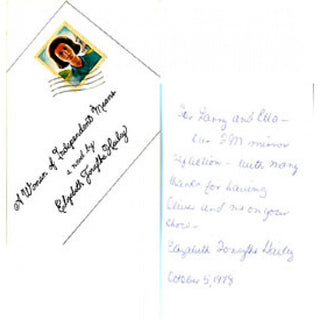 A Woman of Independent Means
a novel by
Elizabeth Forsythe Hailey
For Larry and
our FM mirror
reflection - with many
thanks for having
Oliver and me on your
show -
Elizabeth Forsythe Hailey
October 5, 1978